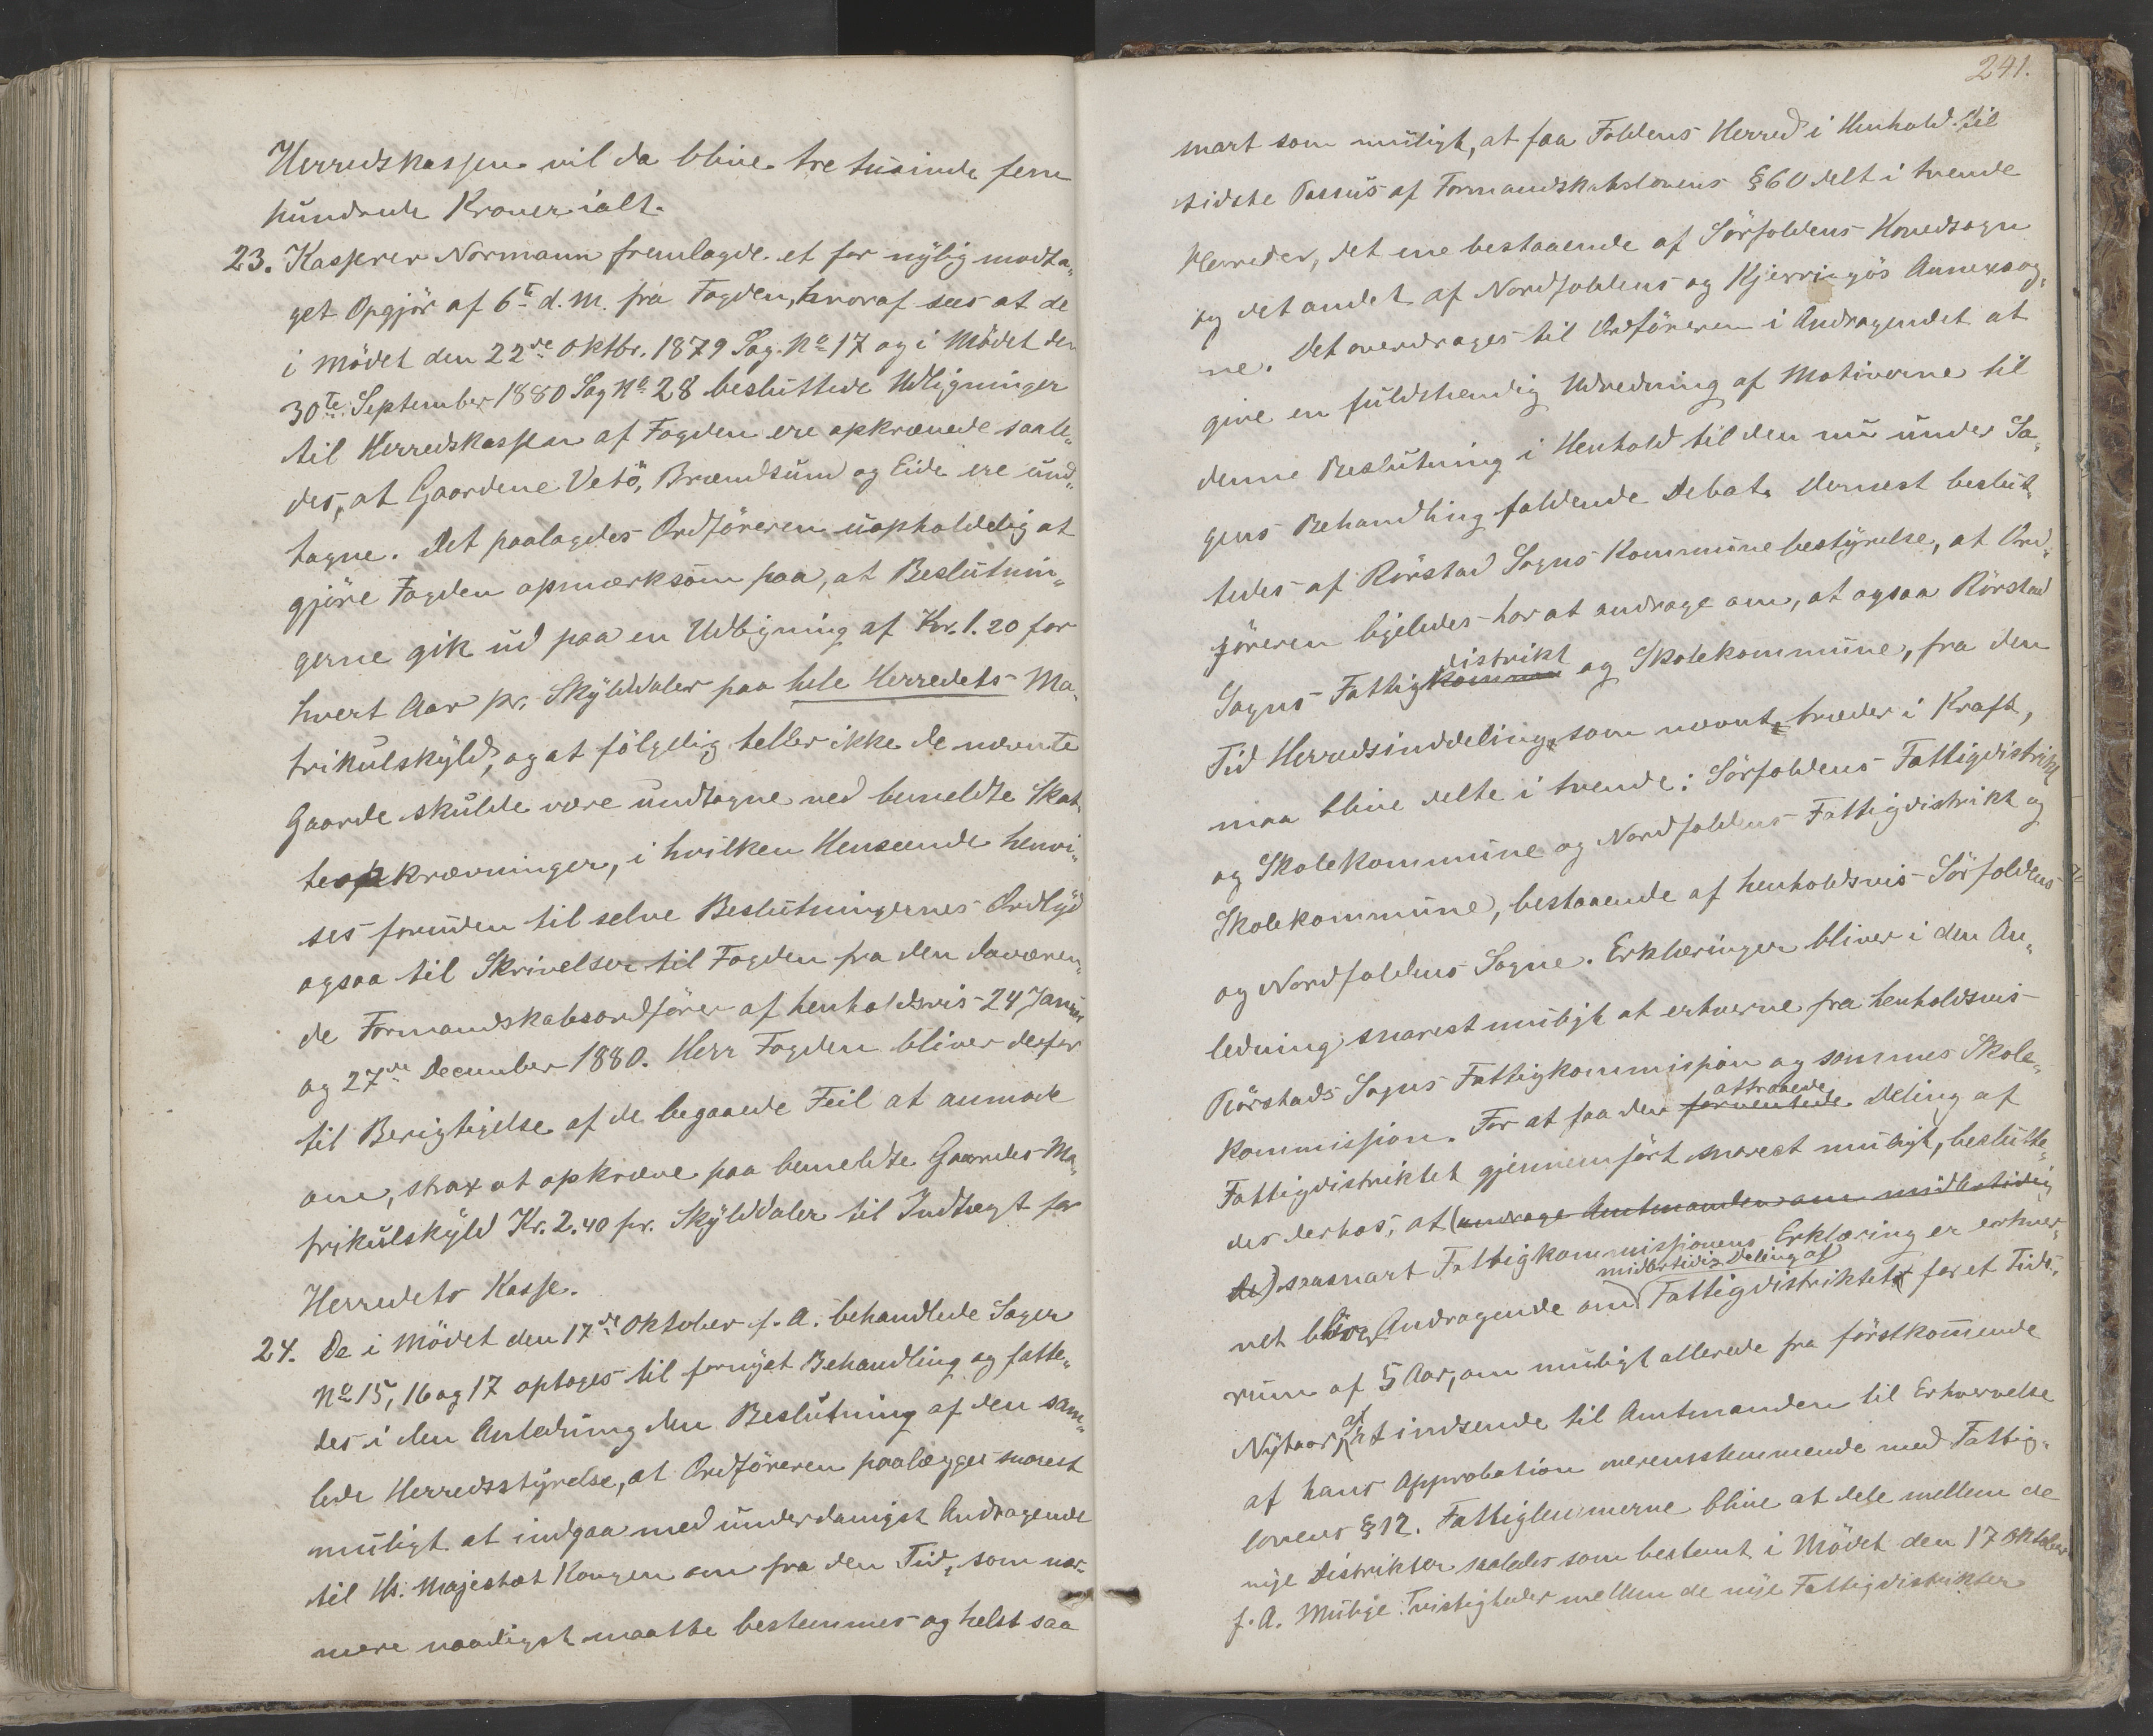 Herredskassen vil da blive tre tusinde fem
hundrede Kroner ialt.
23. Kasserer Normann fremlagde et for nylig modta„
get Opgjör af 6te d. M. fra Fogden, hvoraf sees at de
i Mödet den 22de Oktbr. 1879 Sag No 17 og i Mödet den
30te September 1880 Sag No 28 besluttede Udligninger
til Herredskassen af Fogden ere opkrævede saale„
des, at Gaardene Vetö, Brændsund og Eide ere und„
tagne. Det paalagdes Ordföreren uopholdelig at
gjöre Fogden opmærksom paa, at Beslutnin„
gerne gik ud paa en Udligning af Kr. 1.20 for
hvert Aar pr. Skylddaler paa hele Herredets Ma„
trikulskyld, og at fölgelig heller ikke de nævnte
Gaarde skulde være undtagne ved bemeldte Skat„
teopkrævninger, i hvilken Henseende henvi„
ses foruden til selve Beslutningernes Ordlyd
ogsaa til Skrivelser til Fogden fra den daværen„
de Formandskabsordförer af henholdsvis 24 Januar
og 27de December 1880. Herr Fogden bliver derfor
til Berigtigelse af de begaaede Feil at anmode
om, strax at opkræve paa bemeldte Gaardes Ma„
trikulskyld Kr. 2.40 pr. Skylddaler til Indtægt for
Herredets Kasse.
24. De i Mödet den 17de Oktober f. A. behandlede Sager
No 15, 16 og 17 optoges til fornyet Behandling og fatte„
des i den Anledning den Beslutning af den sam„
lede Herredsstyrelse, at Ordföreren paalægges snarest
muligt at indgaa med underdanigst Andragende
til Hs. Majestæt Kongen om fra den Tid, som nær„
mere naadigst maatte bestemmes og helst saa
241.
snart som muligt, at faa Foldens Herred i Henhold til
sidste Passus af Formandskabslovens § 60 delt i tvende
Herreder, det ene bestaaende af Sörfoldens Hovedsogn
og det andet af Nordfoldens og Kjerringös Annexsog„
ne. Det overdrages til Ordföreren i Andragendet at
give en fuldstændig Udredning af Motiverne til
denne Beslutning i Henhold til den nu under Sa„
gens Behandling faldende Debat. Dernest beslut„
tedes af Rörstad Sogns Kommunebestyrelse, at Ord„
föreren ligeledes har at andrage om, at ogsaa Rörstad
distrikt
Sogns Fattigkommu og Skolekommune, fra den
Tid Herredsinddeling, som nævnt, træder i Kraft,
maa blive delte i tvende: Sörfoldens Fattigdistrikt
og Skolekommune og Nordfoldens Fattigdistrikt og
Skolekommune, bestaaende af henholdsvis Sörfoldens
og Nordfoldens Sogne. Erklæringer bliver i den An„
ledning snarest muligt at erhverve fra henholdsvis
Rörstads Sogns Fattigkommission og sammes Skole„
attraaede
kommission. For at faa den forventede Deling af
Fattigdistriktet gjennemfört snarest muligt, beslutte„
des derhos, at (andrage Amtmanden om midlertidig
de) saasnart Fattigkommissionens Erklæring er erhver„
midlertidig Deling af
vet bliver Andragende om Fattigdistriktet for et Tids„
rum af 5 Aar, om muligt allerede fra förstkommende
at
Nytaar, at indsende til Amtmanden til Erhvervelse
af hans Approbation overensstemmende med Fattig„
lovens § 12. Fattiglemmerne blive at dele mellem de
nye Distrikter saaledes som bestemt i Mödet den 17 Oktober
f. A. Mulige Tvistigheder mellem de nye Fattigdistrikter